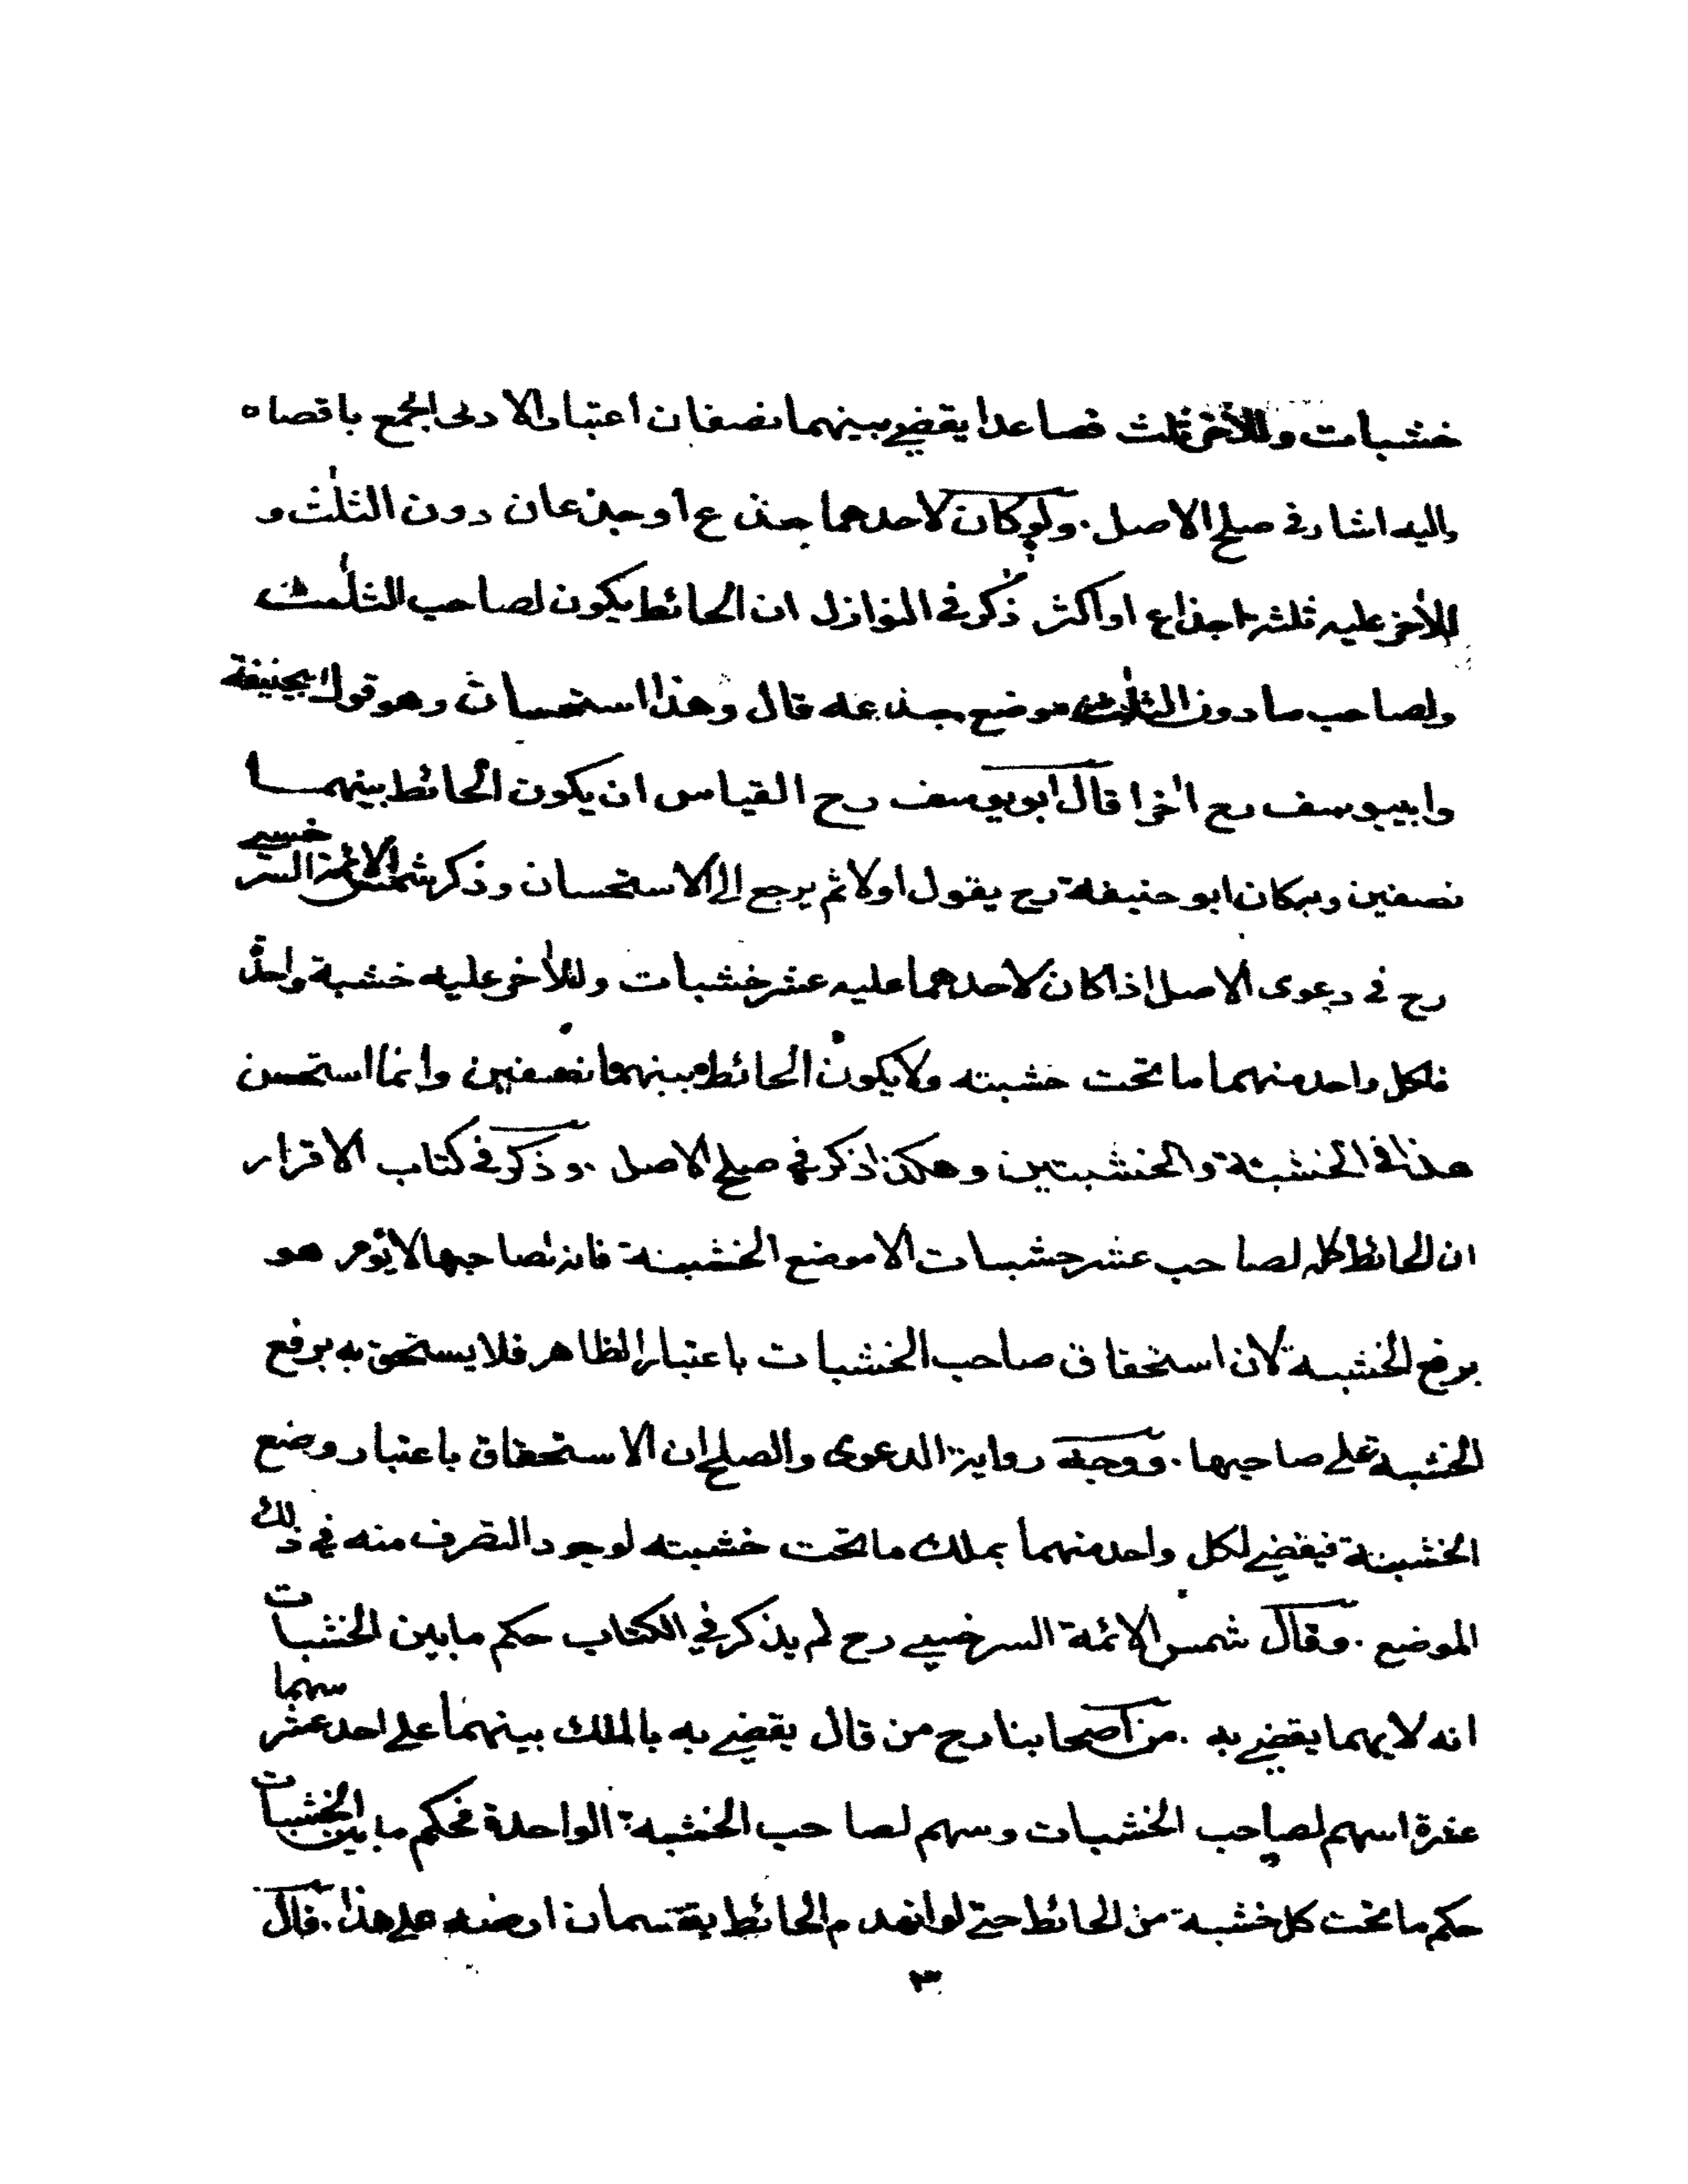 خشبات وللأخر ثلث فصاعدا يقضى بينهما نصفان اعتبارا لادنى الجمع باقصاه
واليه اشار فى صلح الاصل. ولو كان لاحدهما جذع او جذعان دون الثلث و
للأخر عليه ثلثة اجذاع او اكثر ذكر فى النوازل ان الحائط يكون لصاحب الثلث
ولصاحب مادون الثلث موضع جذعه قال وهذا استحسان وهو قول ابيحنيفة
وابييوسف رح اخرا قال ابو يوسف رح القياس ان يكون الحائط بينهما
نصفين وبه كان ابو حنيفة رح يقول اولا ثم يرجع الى الاستحسان وذكر شمس الائمة السرخسى
رح فى دعوى الاصل اذا كان لاحدهما عليه عشر خشبات وللأخر عليه خشبة واحدة
فلكل واحد منهما ما تحت خشبته ولا يكون الحائط بينهما نصفين وانما استحسن
هذا فى الخشبة والخشبتين وهكذا ذكر فى صلح الاصل. وذكر فى كتاب الاقرار
ان الحائط كله لصاحب عشر خشبات الا موضع الخشبة فانه لصاحبها لا يؤمر هو
برفع الخشبة لان استحقاق صاحب الخشبات باعتبار الظاهر فلا يستحق به برفع
الخشبة على صاحبها. ووجه رواية الدعوى والصلح ان الاستحقاق باعتبار وضع
الخشبة فيقضى لكل واحد منهما بملك ما تحت خشبته لوجود التصرف منه فى ذلك
الموضع. وقال شمس الائمة السرخسى رح لم يذكر فى الكتاب حكم ما بين الخشبات
انه لايهما يقضى به. من اصحابنا رح من قال يقضى به بالملك بينهما على احد عشر سهما
عشرة اسهم لصاحب الخشبات وسهم لصاحب الخشبة الواحدة فحكم ما بين الخشبات
حكم ما تحت كل خشبة من الحائط حتى لو انهدم الحائط يقتسمان ارضه على هذا. قال
٣